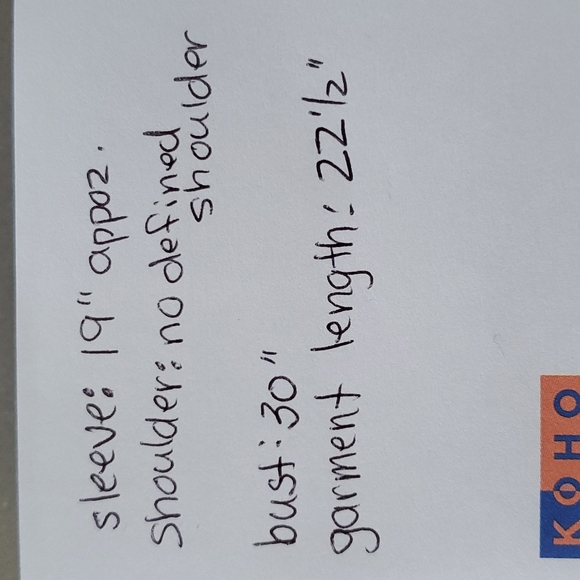 sleeve: 19" appoz.
shoulder: no defined
shoulder
bust: 30"
garment length: 22 1/2"
KOHO